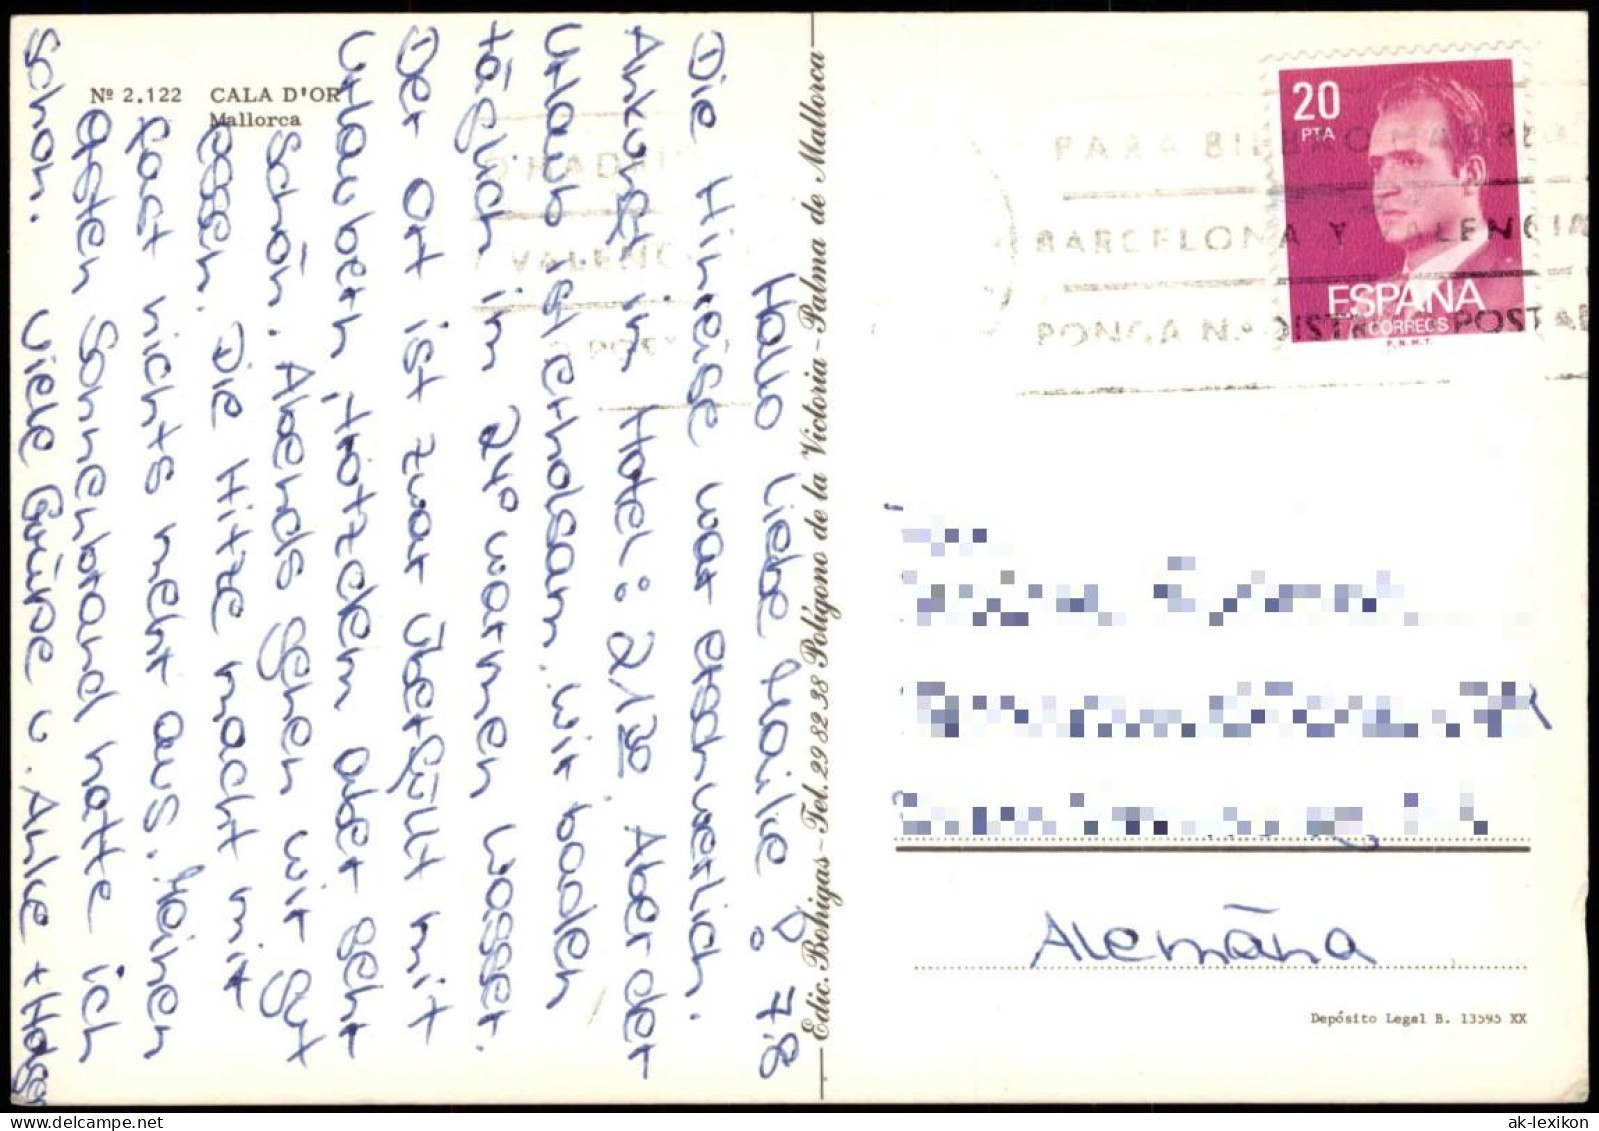 Nº 2.122 CALA D'OR
Mallorca
Hallo Liebe Maike! 7.8
Die Hinreise war etschwerlich.
Ankunft im Hotel: 2/30 Aber der
Urlaub ist erholsam. Wir baden
täglich in 24° warmen Wasser.
Der Ort ist zwar überfüllt mit
Urlaubern, trotzdem aber sehr
Schön. Abends gehen wir gut
essen. Die Hitze macht mir
fast nichts mehr aus. Meinen
ersten Sonnenbrand hatte ich
schon. Viele Grüße v. Anke + Holger
Edic. Bohigas - Tel. 29 82 38 Polígono de la Victoria - Palma de Mallorca
20
PTA
ESPAÑA
CORREOS
F.N.M.T.
PARA BILBAO MADRID
BARCELONA Y VALENCIA
PONGA N.º DISTRITO POSTAL
Alemāna
Depósito Legal B. 13595 XX
ak-lexikon